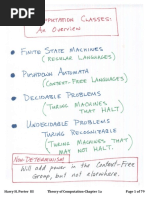 COMPUTATION CLASSES:
An Overview
• FINITE STATE MACHINES
(REGULAR LANGUAGES)
• PUSHDOWN AUTOMATA
(CONTEXT-FREE LANGUAGES)
• DECIDABLE PROBLEMS
(TURING MACHINES
THAT HALT)
• UNDECIDABLE PROBLEMS
TURING RECOGNIZABLE
(TURING MACHINES THAT
MAY NOT HALT.
NON-DETERMINISM
Will add power in the Context-Free
Group, but not in any other class.
Harry H. Porter III
Theory of Computation-Chapter 1a
Page 1 of 79